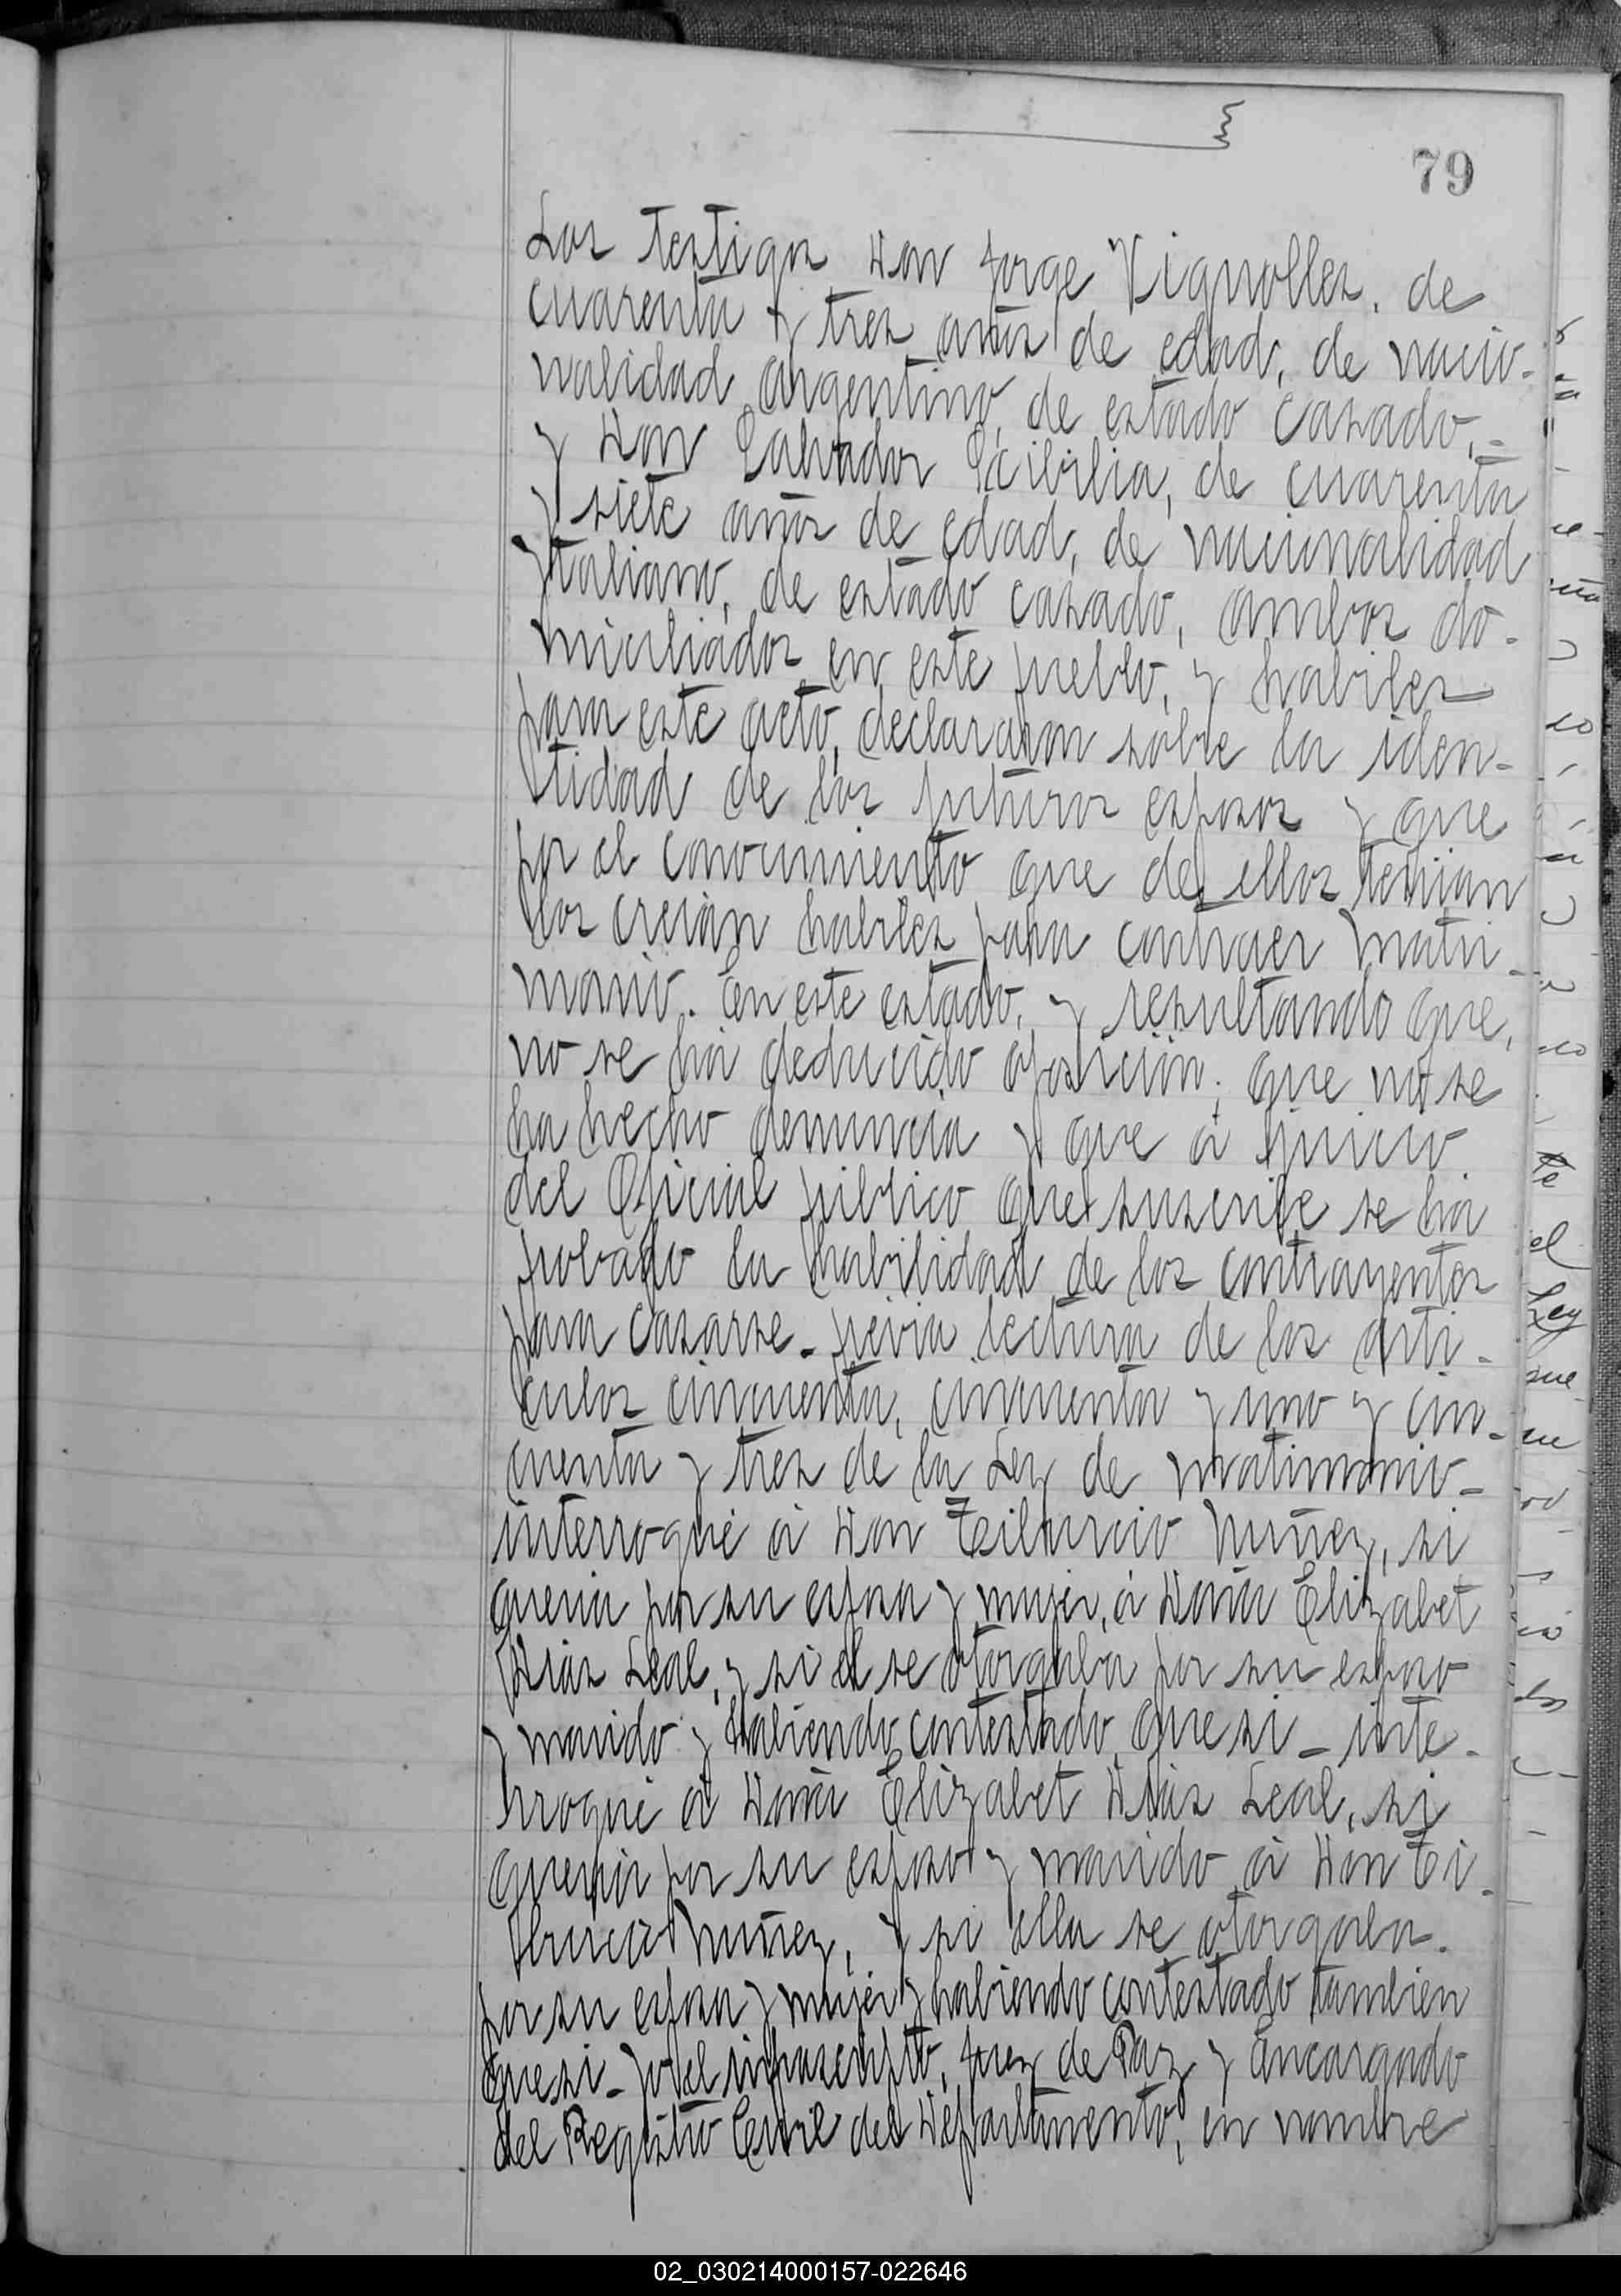 79
Los testigos Don Jorge Vignolles, de
cuarenta y tres años de edad, de nacio-
nalidad argentino, de estado casado,-
y Don Salvador Scibilia, de cuarenta
y siete años de edad, de nacionalidad
Italiano, de estado casado, ambos do-
miciliados en este pueblo, y habiles
para este acto, declararon sobre la iden-
tidad de los futuros esposos y que
por el conocimiento que de ellos tenian
los creian habiles para contraer matri-
monio. En este estado, y resultando que,
no se há deducido oposición, que no se
ha hecho denuncia y que á juicio
del Oficial público que suscribe se há
probado la habilidad de los contrayentes
para casarse - previa lectura de los artí-
culos cincuenta, cincuenta y uno y cin-
cuenta y tres de la Ley de matrimonio -
interrogué á Don Tiburcio Nuñez, si
queria por su esposa y mujer, á Doña Elizabet
Dias Leal, y si él se otorgaba por su esposo
y marido y habiendo contestado que si - inte-
rrogué á Doña Elizabet Dias Leal, si
queria por su esposo y marido á Don Ti-
burcio Nuñez, y si ella se otorgaba.
por su esposa y mujer y habiendo contestado tambien
que si - yo el infrascripto, Juez de Paz y Encargado
del Registro Civil del Departamento, en nombre
02_030214000157-022646